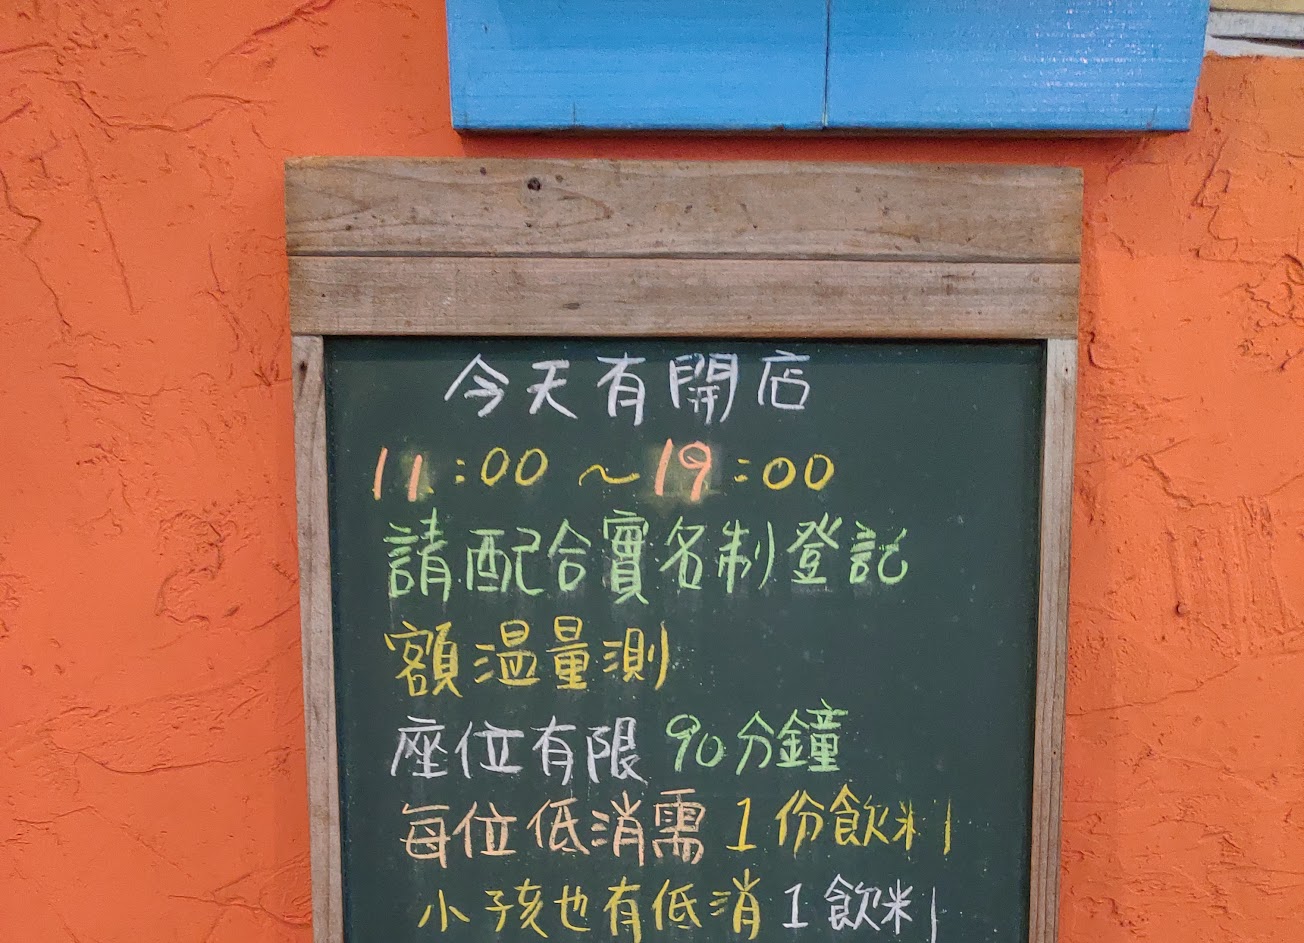 今天有開店
11:00 ~ 19:00
請配合實名制登記
額溫量測
座位有限 90分鐘
每位低消需 1 份飲料
小孩也有低消 1 飲料